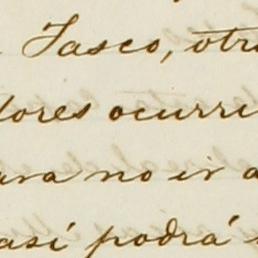 Tasco, otr
dores ocurri
ara no ir a
así podrá